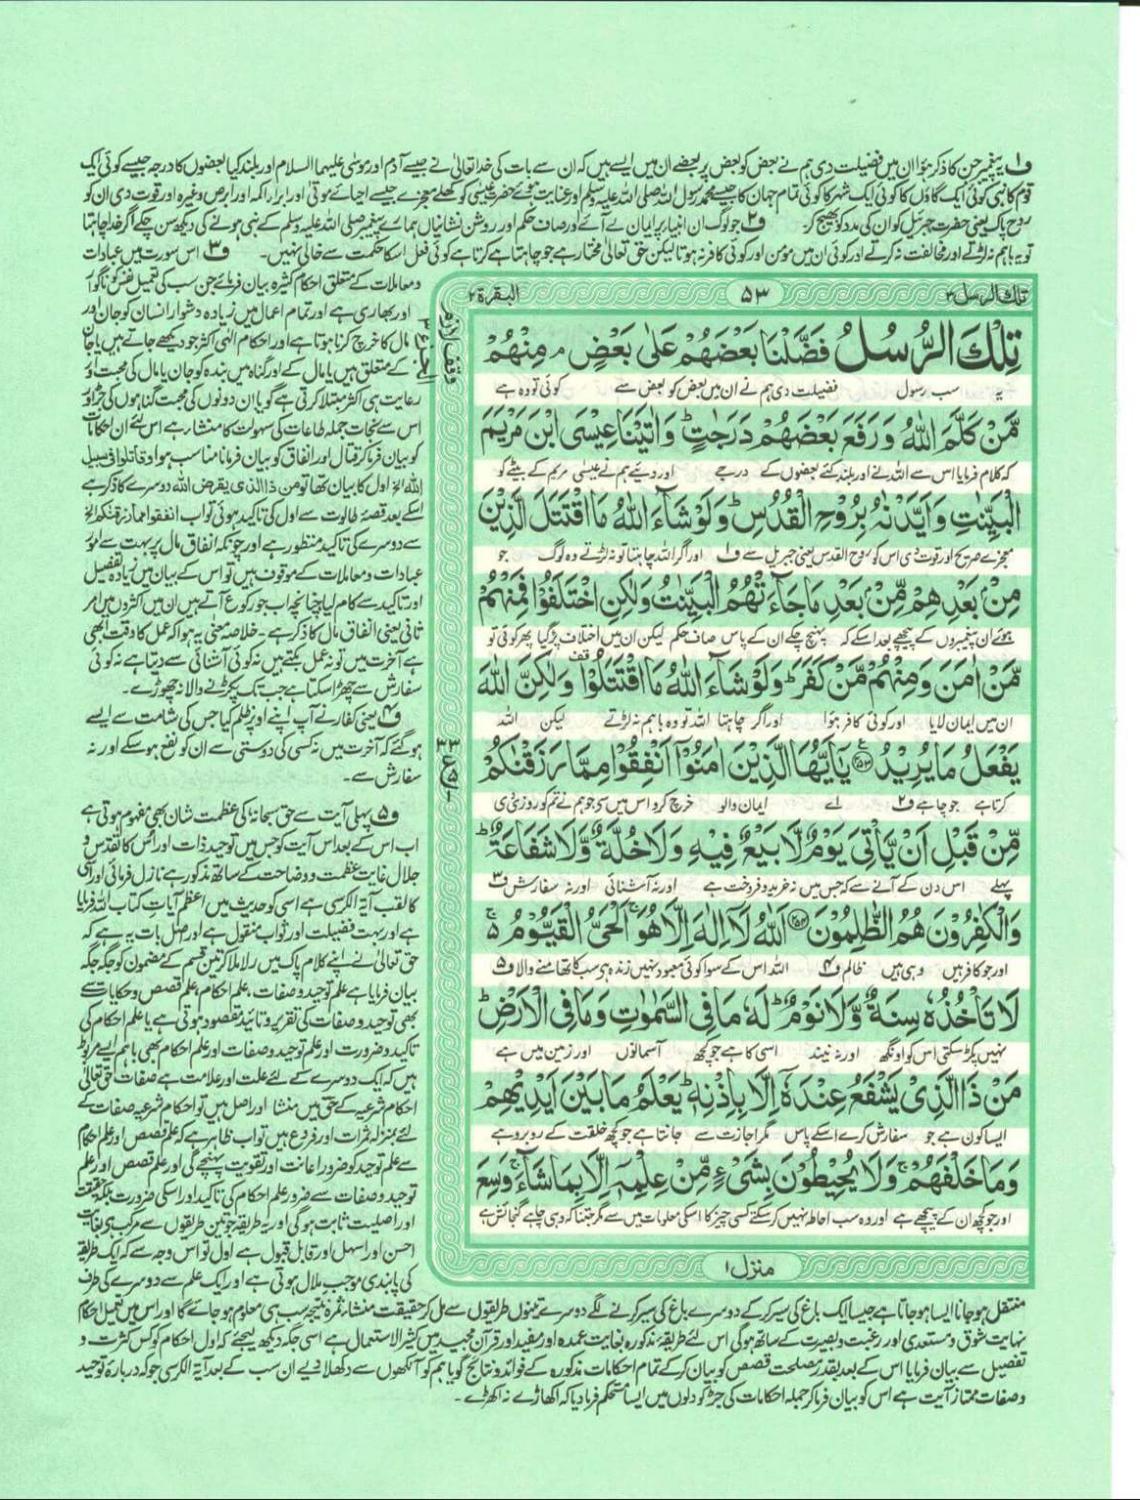 ف۱ پیغمبر جن کا ذکر ہوا ان میں فضیلت دی ہم نے بعض کو بعض پر بعضے ان میں ایسے ہیں کہ ان سے بات کی خدا تعالیٰ نے جیسے آدم اور موسٰی علیہما السلام اور بلند کیا بعضوں کا درجہ جیسے کوئی ایک
قوم کا نبی کوئی ایک گاؤں کا کوئی ایک شہر کا کوئی تمام جہان کا جیسے محمد رسول اللہ صلی اللہ علیہ وسلم اور عنایت ہوئے حضرت عیسٰی کو کھلے معجزے جیسے احیائے موتٰی اور ابراء اکمہ اور ابرص وغیرہ اور قوت دی ان کو
روح پاک یعنی حضرت جبرئیل کو ان کی مدد کو بھیج کر۔ ف۲ جو لوگ ان انبیاء پر ایمان لے آئے اور صاف حکم اور روشن نشانیاں ہمارے پیغمبر صلی اللہ علیہ وسلم کے نبی ہونے کی دیکھ سن چکے اگر خدا چاہتا
تو یہ باہم نہ لڑتے اور مخالفت نہ کرتے اور کوئی ان میں مؤمن اور کوئی کافر نہ ہوتا لیکن حق تعالیٰ مختار ہے جو چاہتا ہے کرتا ہے کوئی فعل اسکا حکمت سے خالی نہیں۔ ف۳ اس سورت میں عبادات
و معاملات کے متعلق احکام کثیرہ بیان فرمائے جن سب کی تعمیل نفس کو ناگوار
اور بھاری ہے اور تمام اعمال میں زیادہ دشوار انسان کو جان اور
مال کا خرچ کرنا ہوتا ہے اور احکام الٰہی اکثر جو دیکھے جاتے ہیں یا جان
کے متعلق ہیں یا مال کے اور گناہ میں بندہ کو جان یا مال کی محبت اور
رعایت ہی اکثر مبتلا کرتی ہے گویا ان دونوں کی محبت گناہوں کی جڑ اور
اس سے نجات جملہ طاعات کی سہولت کا منشا ہے اس لئے ان احکامات
کو بیان فرما کر قتال اور انفاق کو بیان فرمانا مناسب ہوا وقاتلوا فی سبیل
اللہ الخ اول کا بیان تھا تو من ذا الذی یقرض اللہ دوسرے کا ذکر ہے
اسکے بعد قصۂ طالوت سے اول کی تاکید ہوئی تو اب انفقوا مما رزقنکم الخ
سے دوسرے کی تاکید منظور ہے اور چونکہ انفاق مال پر بہت سے امور
عبادات و معاملات کے موقوف ہیں تو اس کے بیان میں زیادہ تفصیل
اور تاکید سے کام لیا چنانچہ اب جو رکوع آتے ہیں ان میں اکثروں میں امر
ثانی یعنی انفاق مال کا ذکر ہے۔ خلاصہ معنی یہ ہوا کہ عمل کا وقت ابھی
ہے آخرت میں تو نہ عمل بکتے ہیں نہ کوئی آشنائی سے دیتا ہے نہ کوئی
سفارش سے چھڑا سکتا ہے جب تک پکڑنے والا نہ چھوڑے۔
ف۴ یعنی کفار نے آپ اپنے اوپر ظلم کیا جس کی شامت سے ایسے
ہو گئے کہ آخرت میں نہ کسی کی دوستی سے ان کو نفع ہو سکے اور نہ
سفارش سے۔
ف۵ پہلی آیت سے حق سبحانہ کی عظمت شان بھی مفہوم ہوتی ہے
اب اس کے بعد اس آیت کو جس میں توحید ذات اور اس کا تقدس و
جلال غایت عظمت و وضاحت کے ساتھ مذکور ہے نازل فرمائی اور اسی
کا لقب آیۃ الکرسی ہے اسی کو حدیث میں اعظم آیات کتاب اللہ فرمایا
ہے اور بہت فضیلت اور ثواب منقول ہے اور اصل بات یہ ہے کہ
حق تعالیٰ نے اپنے کلام پاک میں رلا ملا کر تین قسم کے مضمون کو جگہ جگہ
بیان فرمایا ہے علم توحید و صفات، علم احکام، علم قصص و حکایات سے
بھی توحید و صفات کی تقریر و تائید مقصود ہوتی ہے یا علم احکام کی
تاکید و ضرورت اور علم توحید و صفات اور علم احکام بھی باہم ایسے مربوط
ہیں کہ ایک دوسرے کے لئے علت اور علامت ہے صفات حق تعالیٰ
احکام شرعیہ کے حق میں منشا اور اصل ہیں تو احکام شرعیہ صفات کے
لئے بمنزلہ ثمرات اور فروع ہیں تو اب ظاہر ہے کہ علم قصص اور علم احکام
سے علم توحید کو ضرور اعانت اور تقویت پہنچے گی اور علم قصص اور علم
توحید و صفات سے ضرور علم احکام کی تاکید اور اسکی ضرورت بلکہ حقیقت
اور اصلیت ثابت ہو گی اور یہ طریقہ جو تین طریقوں سے مرکب ہے بغایت
احسن اور اسہل اور قابل قبول ہے اول تو اس وجہ سے کہ ایک طریقہ
کی پابندی موجب ملال ہوتی ہے اور ایک علم سے دوسرے کی طرف
منتقل ہو جانا ایسا ہو جاتا ہے جیسا ایک باغ کی سیر کر کے دوسرے باغ کی سیر کرنے لگے دوسرے تینوں طریقوں سے مل کر حقیقت منشاء ثمرہ نتیجہ سب ہی معلوم ہو جائے گا اور اس میں تعمیل احکام
نہایت شوق و مستعدی اور رغبت و بصیرت کے ساتھ ہو گی اس لئے طریقہ مذکورہ بغایت عمدہ اور مفید اور قرآن مجید میں کثیر الاستعمال ہے اسی جگہ دیکھ لیجئے کہ اول احکام کو کس کثرت و
تفصیل سے بیان فرمایا اس کے بعد بقدر مصلحت قصص کو بیان کر کے تمام احکامات مذکورہ کے فوائد و نتائج گویا ہم کو آنکھوں سے دکھلا دیے ان سب کے بعد آیۃ الکرسی جو کہ دربارۂ توحید
و صفات ممتاز آیت ہے اس کو بیان فرما کر جملہ احکامات کی جڑ کو دلوں میں ایسا مستحکم فرما دیا کہ اکھاڑے نہ اکھڑے۔
تلك الرسل ۳
۵۳
البقرة ۲
تِلْكَ الرُّسُلُ فَضَّلْنَا بَعْضَهُمْ عَلٰى بَعْضٍ ۘ مِنْهُمْ
یہ سب رسول فضیلت دی ہم نے ان میں بعض کو بعض سے کوئی تو وہ ہے
مَّنْ كَلَّمَ اللّٰهُ وَرَفَعَ بَعْضَهُمْ دَرَجٰتٍ ؕ وَاٰتَيْنَا عِيْسَى ابْنَ مَرْيَمَ
کہ کلام فرمایا اس سے اللہ نے اور بلند کئے بعضوں کے درجے اور دیئے ہم نے عیسٰی مریم کے بیٹے کو
الْبَيِّنٰتِ وَاَيَّدْنٰهُ بِرُوْحِ الْقُدُسِ ؕ وَلَوْ شَآءَ اللّٰهُ مَا اقْتَتَلَ الَّذِيْنَ
معجزے صریح اور قوت دی اس کو روح القدس یعنی جبریل سے ف۱ اور اگر اللہ چاہتا تو نہ لڑتے وہ لوگ جو
مِنْۢ بَعْدِهِمْ مِّنْۢ بَعْدِ مَا جَآءَتْهُمُ الْبَيِّنٰتُ وَلٰكِنِ اخْتَلَفُوْا فَمِنْهُمْ
ہوئے ان پیغمبروں کے پیچھے بعد اسکے کہ پہنچ چکے ان کے پاس صاف حکم لیکن ان میں اختلاف پڑ گیا پھر کوئی تو
مَّنْ اٰمَنَ وَمِنْهُمْ مَّنْ كَفَرَ ؕ وَلَوْ شَآءَ اللّٰهُ مَا اقْتَتَلُوْا ۫ وَلٰكِنَّ اللّٰهَ
ان میں ایمان لایا اور کوئی کافر ہوا اور اگر چاہتا اللہ تو وہ باہم نہ لڑتے لیکن اللہ
يَفْعَلُ مَا يُرِيْدُ ﴿۲۵۳﴾ يٰٓاَيُّهَا الَّذِيْنَ اٰمَنُوْٓا اَنْفِقُوْا مِمَّا رَزَقْنٰكُمْ
کرتا ہے جو چاہے ف۲ اے ایمان والو خرچ کرو اس میں سے جو ہم نے تم کو روزی دی
مِّنْ قَبْلِ اَنْ يَّاْتِيَ يَوْمٌ لَّا بَيْعٌ فِيْهِ وَلَا خُلَّةٌ وَّلَا شَفَاعَةٌ ؕ
پہلے اس دن کے آنے سے کہ جس میں نہ خرید و فروخت ہے اور نہ آشنائی اور نہ سفارش ف۳
وَالْكٰفِرُوْنَ هُمُ الظّٰلِمُوْنَ ﴿۲۵۴﴾ اَللّٰهُ لَاۤ اِلٰهَ اِلَّا هُوَ ۚ اَلْحَيُّ الْقَيُّوْمُ ۚ
اور جو کافر ہیں وہی ہیں ظالم ف۴ اللہ اس کے سوا کوئی معبود نہیں زندہ ہے سب کا تھامنے والا ف۵
لَا تَاْخُذُهٗ سِنَةٌ وَّلَا نَوْمٌ ؕ لَهٗ مَا فِي السَّمٰوٰتِ وَمَا فِي الْاَرْضِ ؕ
نہیں پکڑ سکتی اس کو اونگھ اور نہ نیند اسی کا ہے جو کچھ آسمانوں اور زمین میں ہے
مَنْ ذَا الَّذِيْ يَشْفَعُ عِنْدَهٗۤ اِلَّا بِاِذْنِهٖ ؕ يَعْلَمُ مَا بَيْنَ اَيْدِيْهِمْ
ایسا کون ہے جو سفارش کرے اسکے پاس مگر اجازت سے جانتا ہے جو کچھ خلقت کے روبرو ہے
وَمَا خَلْفَهُمْ ۚ وَلَا يُحِيْطُوْنَ بِشَيْءٍ مِّنْ عِلْمِهٖۤ اِلَّا بِمَا شَآءَ ۚ وَسِعَ
اور جو کچھ ان کے پیچھے ہے اور وہ سب احاطہ نہیں کر سکتے کسی چیز کا اسکی معلومات میں سے مگر جتنا کہ وہی چاہے گنجائش ہے
منزل ۱